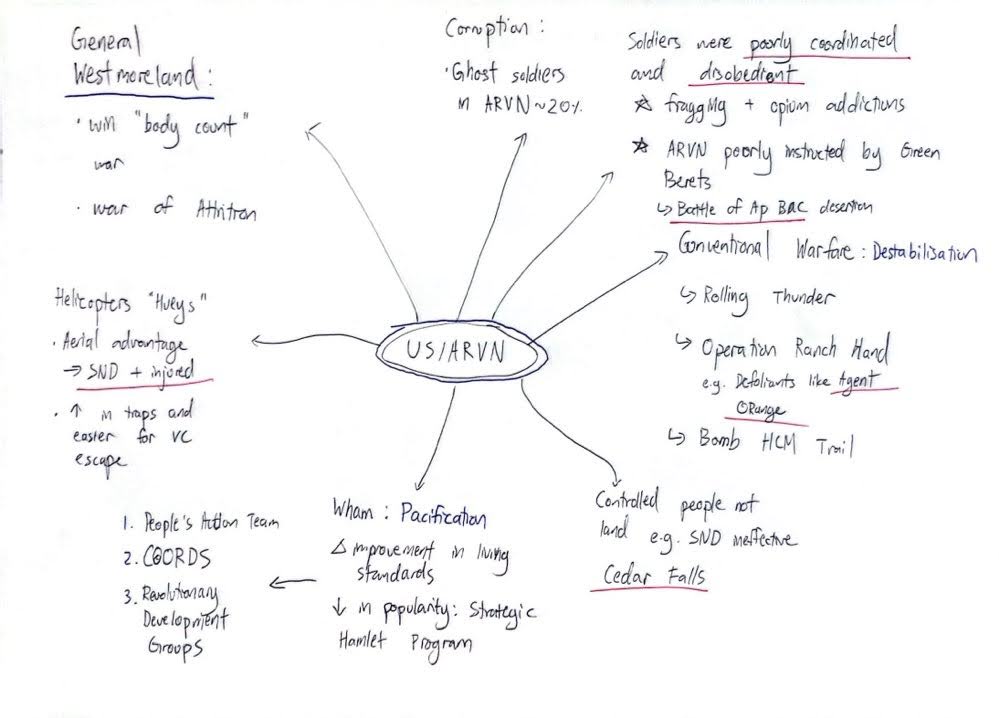 General
Westmoreland :
· win "body count"
war
· war of Attrition
Corruption :
· Ghost soldiers
in ARVN ~20%
Soldiers were poorly coordinated
and disobedient
☆ fragging + opium addictions
☆ ARVN poorly instructed by Green
Berets
↳ Battle of Ap Bac desertion
Conventional Warfare : Destabilisation
↳ Rolling Thunder
↳ Operation Ranch Hand
e.g. Defoliants like Agent
ORange
↳ Bomb HCM Trail
Helicopters "Hueys"
· Aerial advantage
→ SND + injured
· ↑ in traps and
easier for VC
escape
US/ARVN
Controlled people not
land e.g. SND ineffective
Cedar Falls
Wham : Pacification
△ improvement in living
standards
↓ in popularity : Strategic
Hamlet Program
1. People's Action Team
2. COORDS
3. Revolutionary
Development
Groups